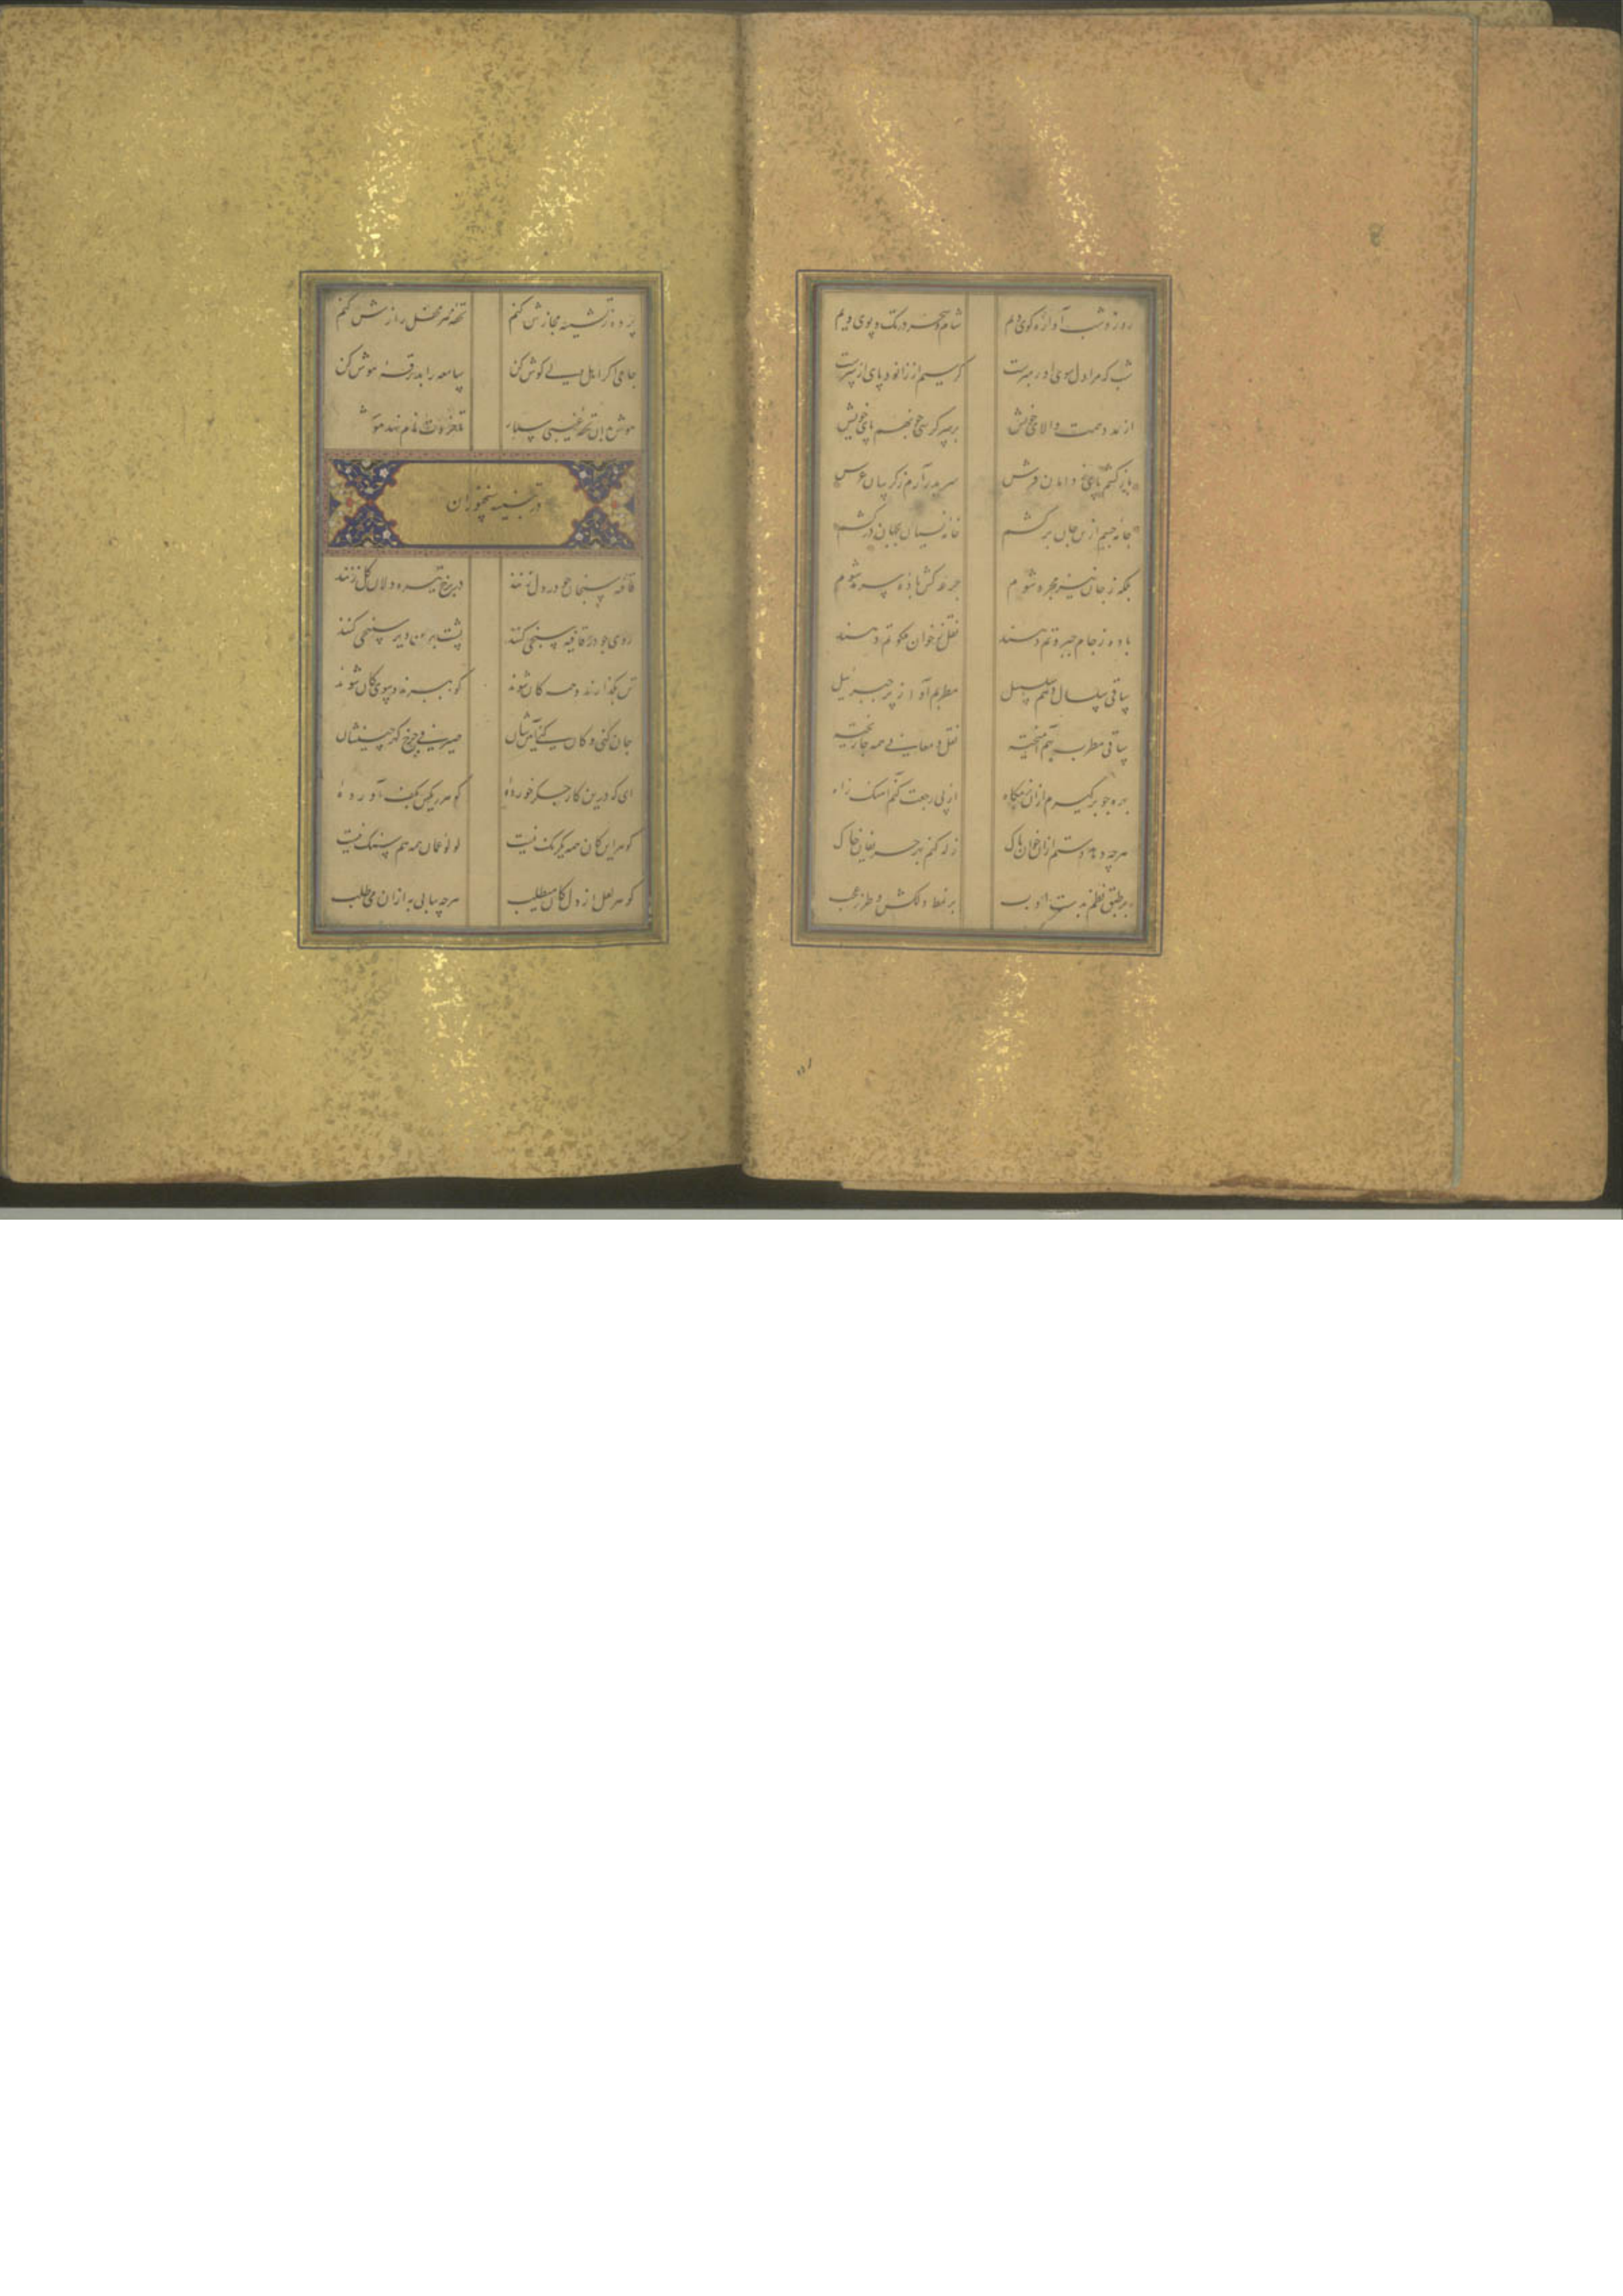 روز و شب آواره کوی ویم شام و سحر در تک و پوی ویم
شب که مرا دل سوی او رهبرست کرسیم از زانو و پای از سرست
از مدد همت والای خویش بر سر کرسی چو نهم پای خویش
باز کشم پای ز دامان فرش سر بدر آرم ز گریبان عرش
جامه جسم از تن جان برکشم خامه نسیان بجهان درکشم
بلکه ز جان نیز مجرد شوم جرعه کش باده سرمد شوم
باده ز جام جبروتم دهند نقل ز خوان ملکوتم دهند
ساقی سلسال دهم سلسبیل مطربم آواز پر جبرئیل
ساقی مطرب بهم آمیخته نقل و معانی همه جا ریخته
بهره چو برگیرم ازان بزمگاه از پی رجعت کنم آهنگ راه
هرچه دهد دستم ازان خوان پاک زله کنم بهر حریفان خاک
بر طبق نظم بدست ادب بر نمط دلکش و طرز عجب
پرده ز تشبیه مجازش کنم تحفه هر محفل رازش کنم
جامی اگر اهل دلی گوش کن سامعه را بدرقه هوش کن
هوش باین تحفه غیبی سپار
در تنبیه سخنوران
قافیه سنجان چو در دل زنند در برخ تیره دلان گل زنند
روی چو در قافیه سنجی کنند پشت برین دیر سپنجی کنند
تن بگذارند و همه جان شوند کوه ببرند و سوی کان شوند
جان کنی و کان کنی آیینشان صیرفی چرخ گهر چینشان
ای که درین کار جگر خورده گوهر رنگین بکف آورده
گوهر این کان همه یکرنگ نیست لولو عمان همه هم سنگ نیست
گوهر لعل از دل کان میطلب هرچه بیابی به ازان می طلب